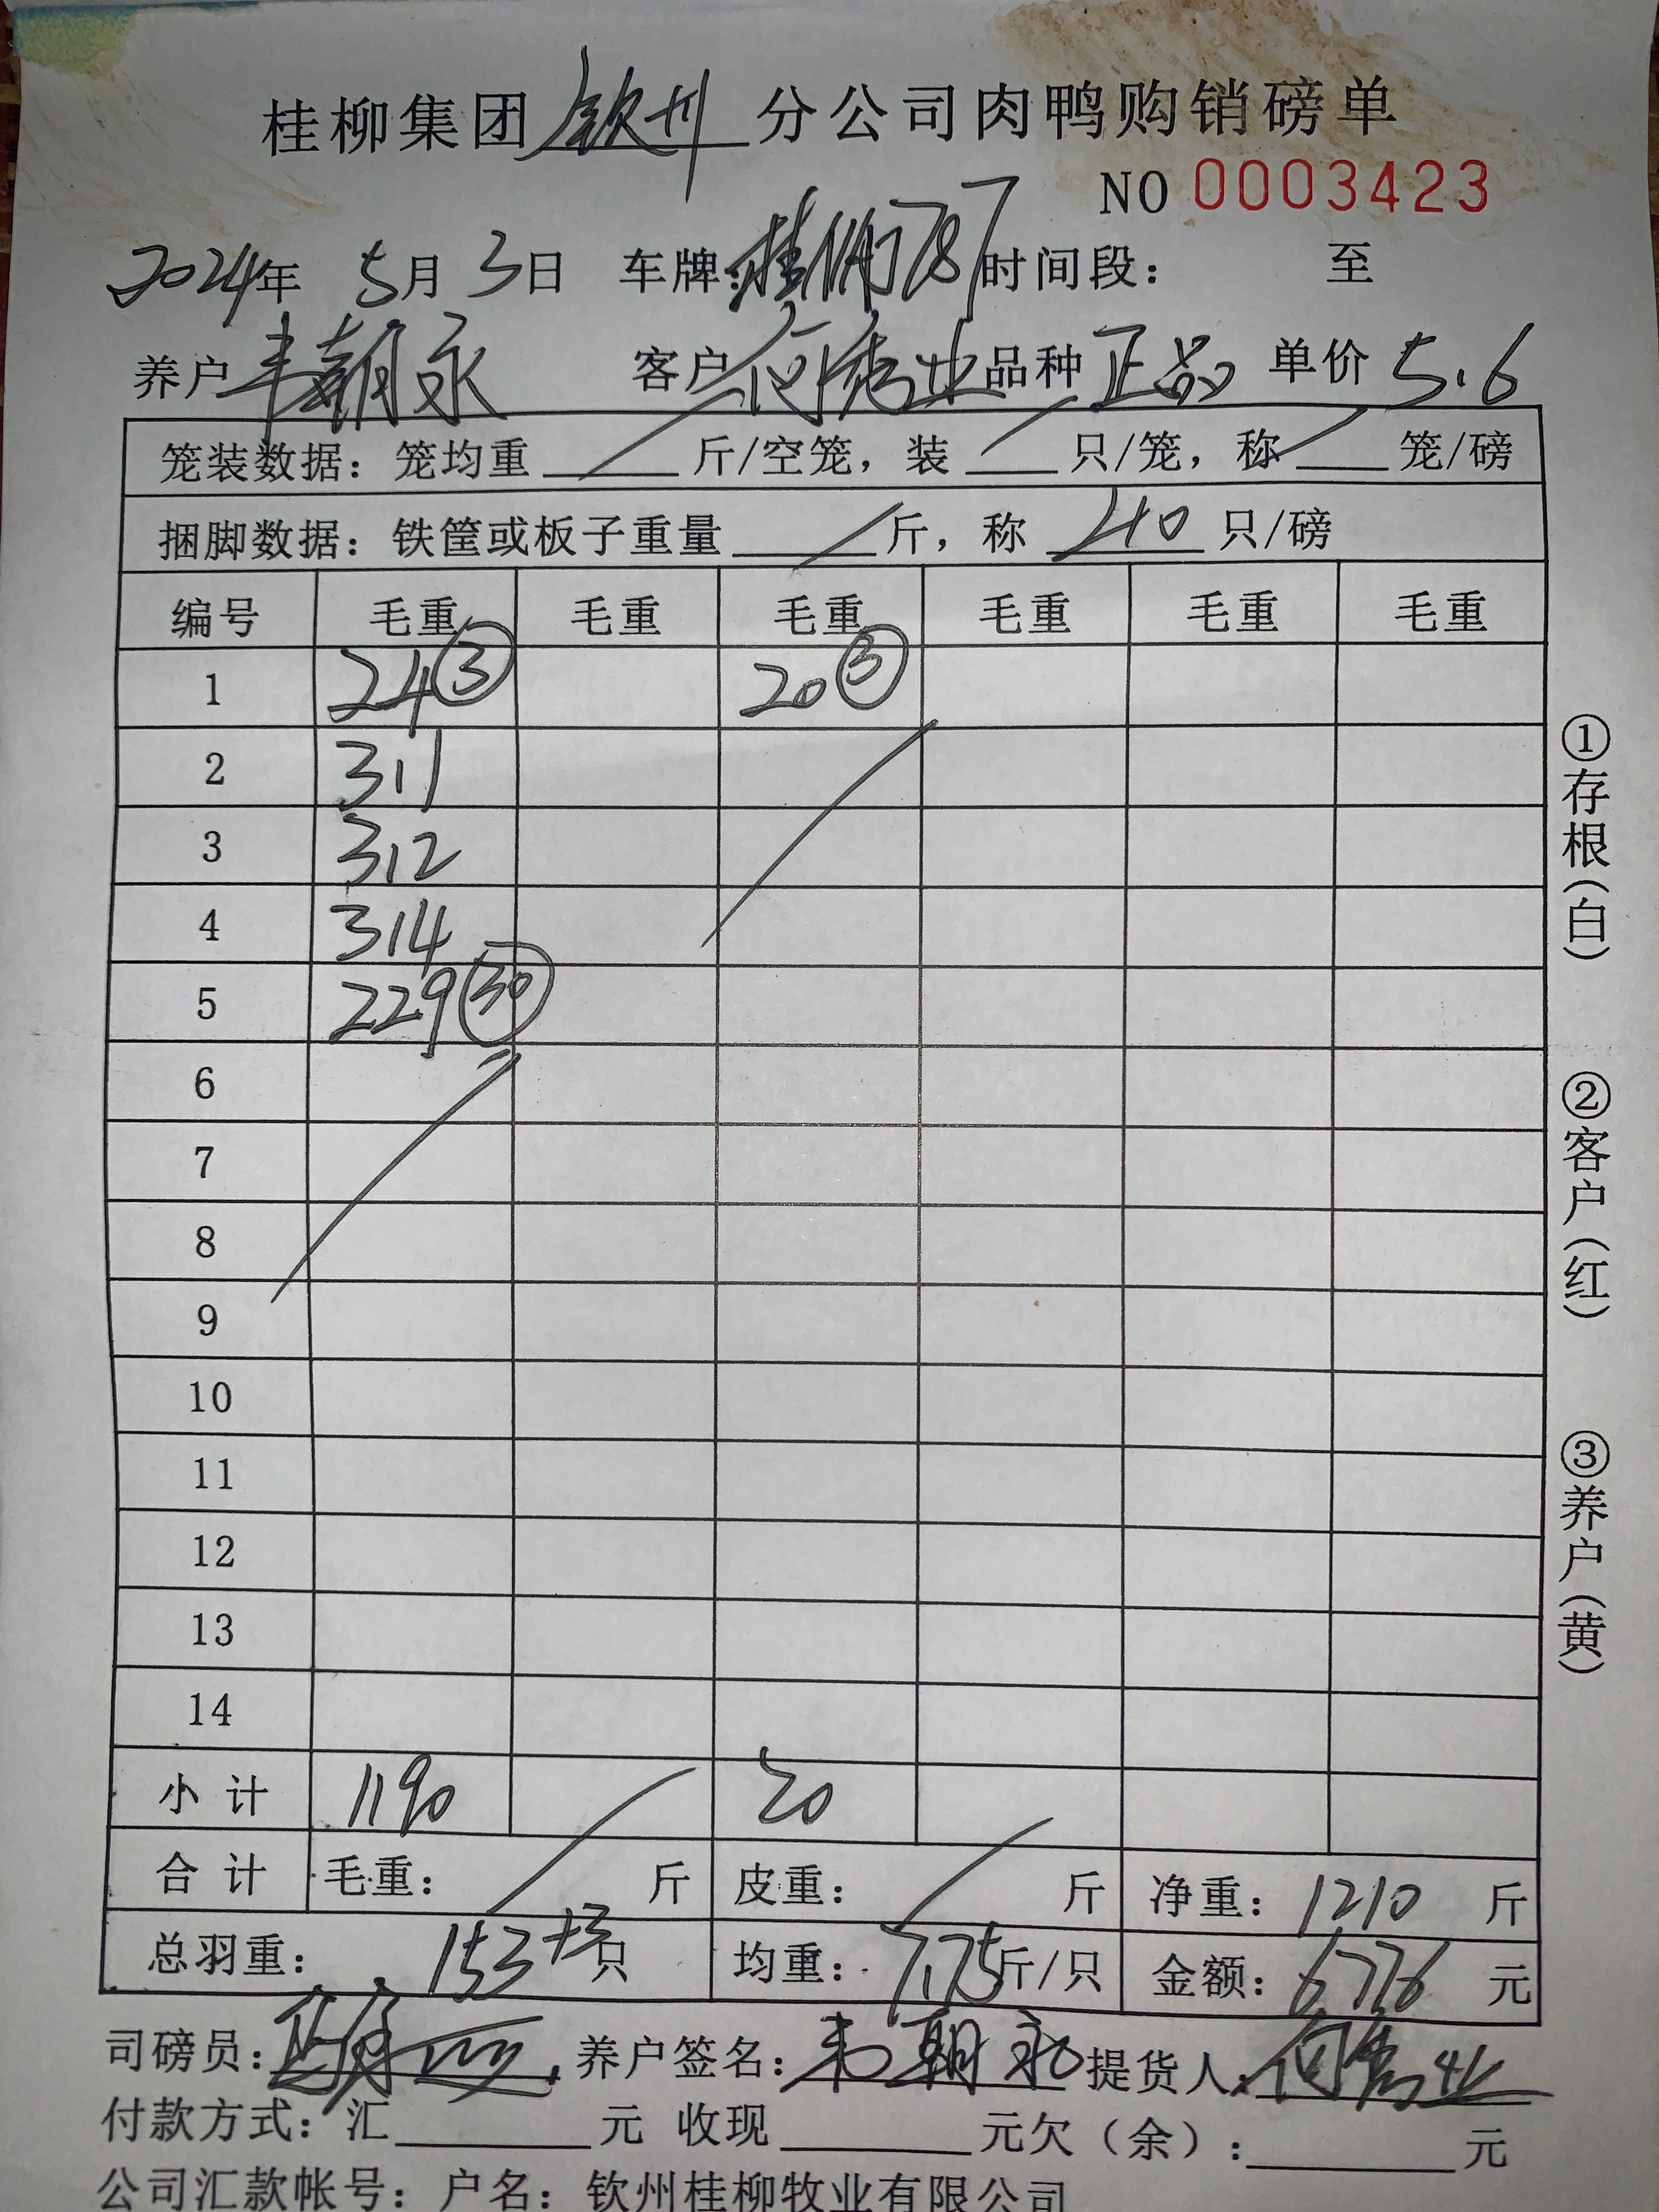 桂柳集团钦州分公司肉鸭购销磅单
NO 0003423
2024年 5月 3日 车牌:桂 787 时间段: 至
养户 韦朝永 客户 何 业 品种 正品 单价 5.6
笼装数据: 笼均重 / 斤/空笼, 装 / 只/笼, 称 / 笼/磅
捆脚数据: 铁筐或板子重量 / 斤, 称 40 只/磅
编号 毛重 毛重 毛重 毛重 毛重 毛重
1 24③ 20③
2 311
3 312
4 314
5 229㉚
6
7
8
9
10
11
12
13
14
小计 1190 20
合计 毛重: / 斤 皮重: / 斤 净重: 1210 斤
总羽重: 153+3只 均重: 7.75斤/只 金额: 6776 元
司磅员: 养户签名: 韦朝永 提货人: 何 业
付款方式: 汇 元 收现 元欠(余): 元
公司汇款帐号: 户名: 钦州桂柳牧业有限公司
①存根(白)
②客户(红)
③养户(黄)